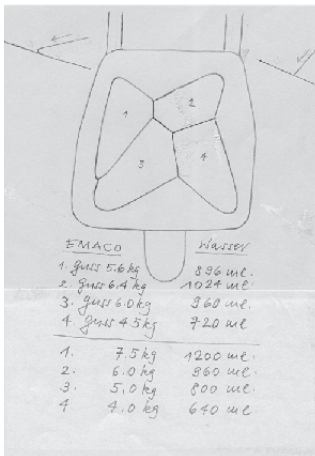 1
2
3
4
EMACO Wasser
1. Guss 5.6 kg 896 ml.
2. Guss 6.4 kg 1024 ml.
3. Guss 6.0 kg 960 ml.
4. Guss 4.5 kg 720 ml.
1. 7.5 kg 1200 ml.
2. 6.0 kg 960 ml.
3. 5.0 kg 800 ml.
4 4.0 kg 640 ml.